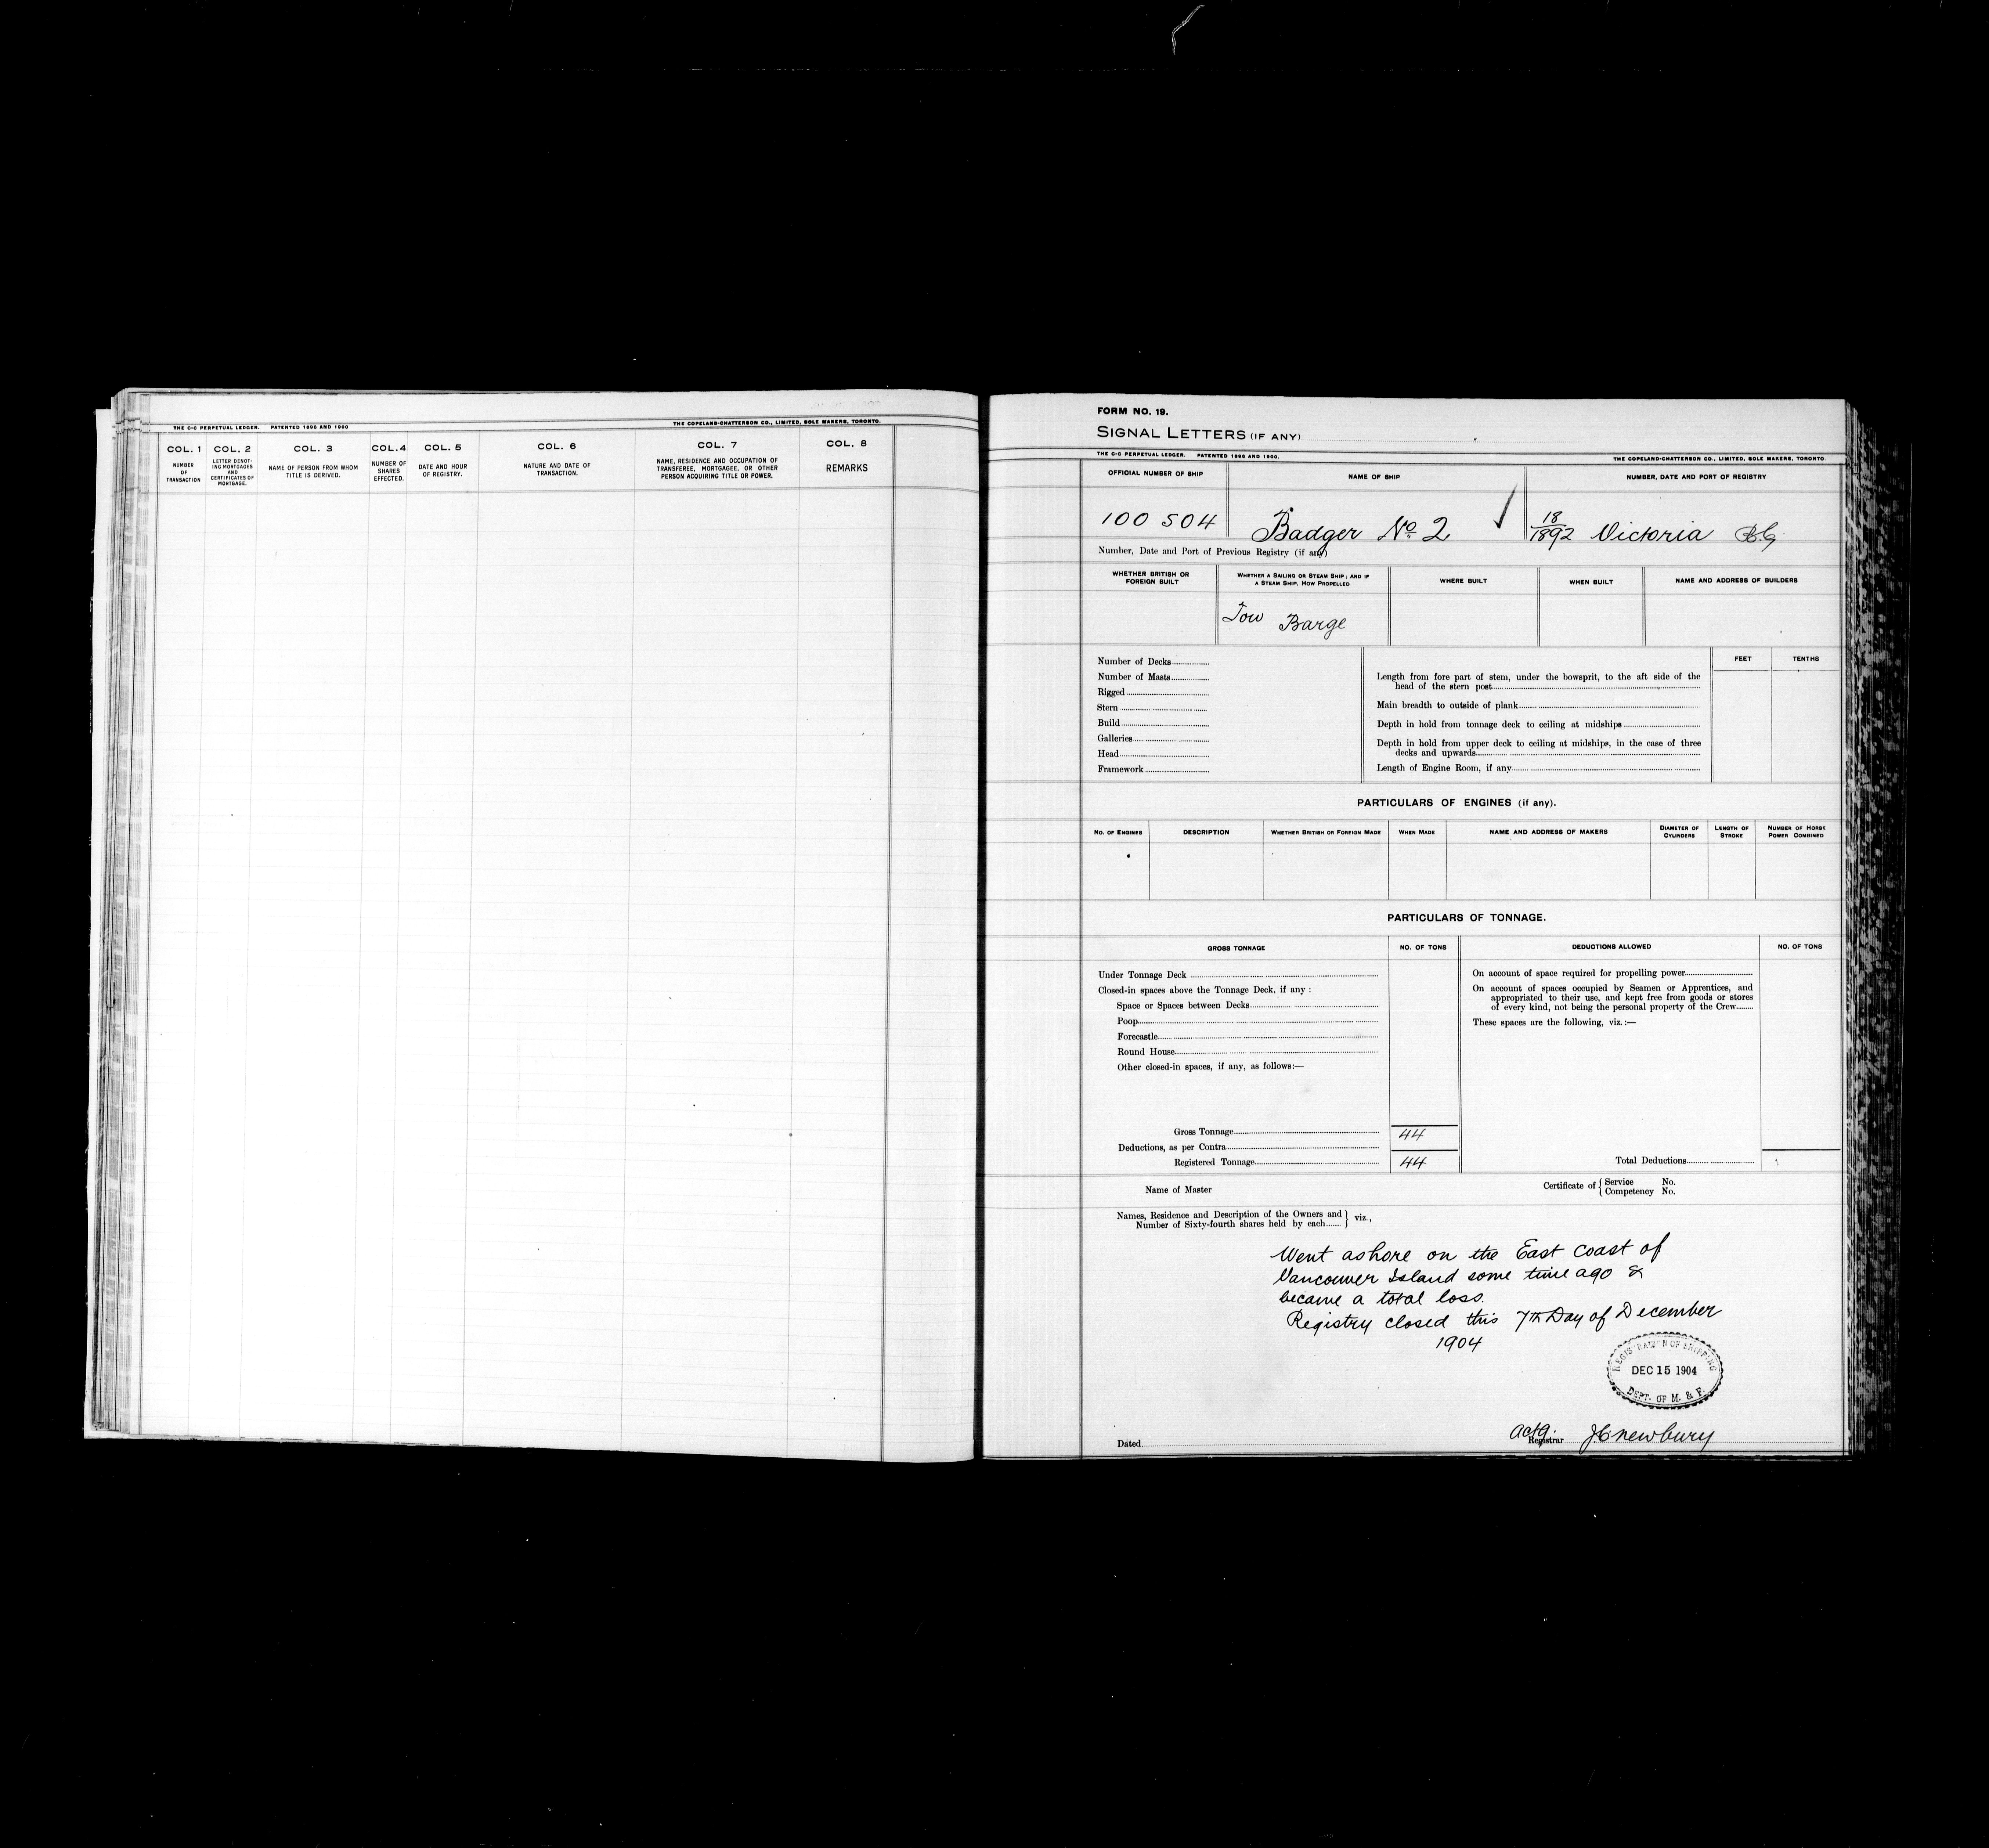 THE C-C PERPETUAL LEDGER. PATENTED 1896 AND 1900
THE COPELAND-CHATTERSON CO., LIMITED, SOLE MAKERS, TORONTO.
COL. 1 COL. 2 COL. 3 COL. 4 COL. 5 COL. 6 COL. 7 COL. 8
NUMBER OF TRANSACTION
LETTER DENOT-
ING MORTGAGES
AND
CERTIFICATES OF
MORTGAGE.
NAME OF PERSON FROM WHOM
TITLE IS DERIVED.
NUMBER OF
SHARES
EFFECTED.
DATE AND HOUR
OF REGISTRY.
NATURE AND DATE OF
TRANSACTION.
NAME, RESIDENCE AND OCCUPATION OF
TRANSFEREE, MORTGAGEE, OR OTHER
PERSON ACQUIRING TITLE OR POWER.
REMARKS
FORM NO. 19.
SIGNAL LETTERS (IF ANY)
THE C-C PERPETUAL LEDGER. PATENTED 1896 AND 1900.
THE COPELAND-CHATTERSON CO., LIMITED, SOLE MAKERS, TORONTO
OFFICIAL NUMBER OF SHIP
NAME OF SHIP
NUMBER, DATE AND PORT OF REGISTRY
100 504
Badger No 2
18/1892 Victoria B.C.
Number, Date and Port of Previous Registry (if any)
WHETHER BRITISH OR
FOREIGN BUILT
WHETHER A SAILING OR STEAM SHIP; AND IF
A STEAM SHIP, HOW PROPELLED
WHERE BUILT
WHEN BUILT
NAME AND ADDRESS OF BUILDERS
Tow Barge
Number of Decks
Number of Masts
Rigged
Stern
Build
Galleries
Head
Framework
FEET TENTHS
Length from fore part of stem, under the bowsprit, to the aft side of the
head of the stern post
Main breadth to outside of plank
Depth in hold from tonnage deck to ceiling at midships
Depth in hold from upper deck to ceiling at midships, in the case of three
decks and upwards
Length of Engine Room, if any
PARTICULARS OF ENGINES (if any).
NO. OF ENGINES
DESCRIPTION
WHETHER BRITISH OR FOREIGN MADE
WHEN MADE
NAME AND ADDRESS OF MAKERS
DIAMETER OF
CYLINDERS
LENGTH OF
STROKE
NUMBER OF HORSE
POWER COMBINED
PARTICULARS OF TONNAGE.
GROSS TONNAGE
NO. OF TONS
DEDUCTIONS ALLOWED
NO. OF TONS
Under Tonnage Deck
Closed-in spaces above the Tonnage Deck, if any :
Space or Spaces between Decks
Poop
Forecastle
Round House
Other closed-in spaces, if any, as follows:—
Gross Tonnage 44
Deductions, as per Contra
Registered Tonnage 44
On account of space required for propelling power
On account of spaces occupied by Seamen or Apprentices, and
appropriated to their use, and kept free from goods or stores
of every kind, not being the personal property of the Crew
These spaces are the following, viz.:—
Total Deductions
Name of Master
Certificate of { Service No.
Competency No.
Names, Residence and Description of the Owners and
Number of Sixty-fourth shares held by each } viz.,
Went ashore on the East coast of
Vancouver Island some time ago &
became a total loss.
Registry closed this 7th Day of December
1904
REGISTRATION OF SHIPPING
DEC 15 1904
DEPT. OF M. & F.
Dated
Actg. Registrar J C Newbury